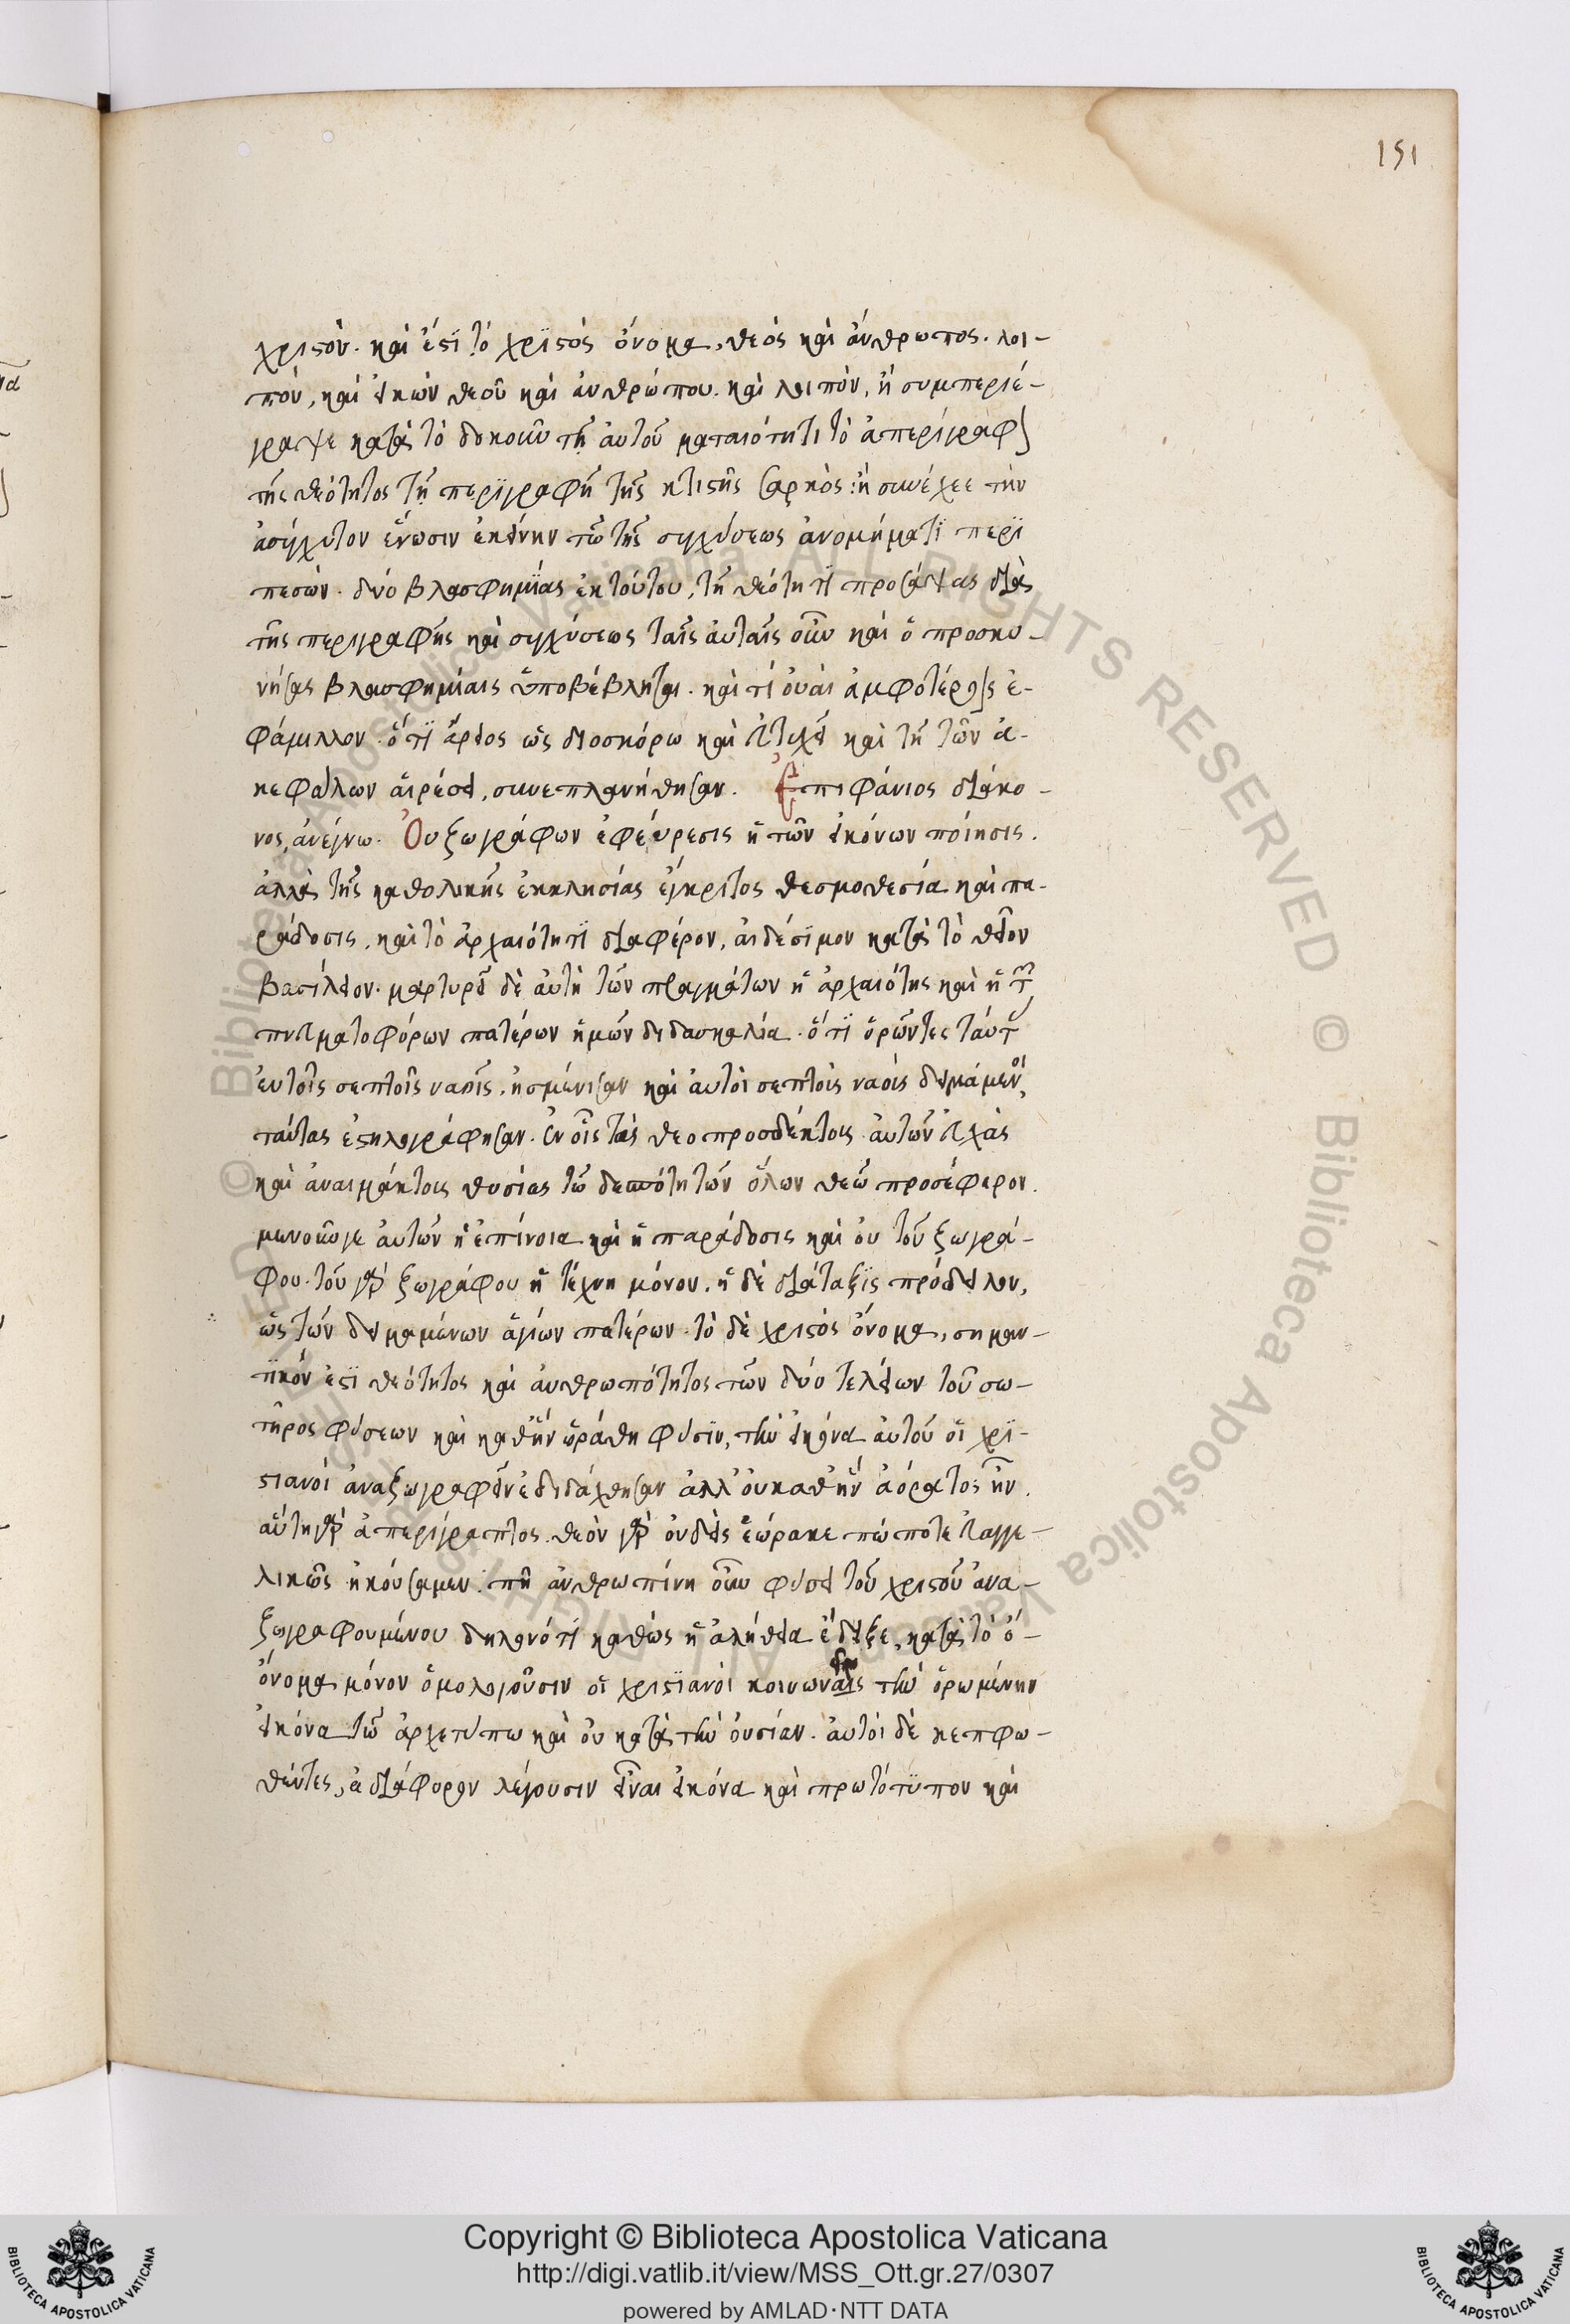 151
χριστόν. καὶ ἔστι τὸ χριστὸς ὄνομα, θεὸς καὶ ἄνθρωπος. λοι-
πὸν, καὶ εἰκὼν θεοῦ καὶ ἀνθρώπου. καὶ λοιπὸν, ἢ συμπεριέ-
γραψε κατὰ τὸ δοκοῦν τῇ αὐτοῦ ματαιότητι τὸ ἀπερίγραφον
τῆς θεότητος τῇ περιγραφῇ τῆς κτιστῆς σαρκὸς: ἢ συνέχεε τὴν
ἀσύγχυτον ἕνωσιν ἐκείνην τῶ τῆς συγχύσεως ἀνομήματι περι
πεσών. δύο βλασφημίας ἐκ τούτου, τῇ θεότητι προσάψας διὰ
τῆς περιγραφῆς καὶ συγχύσεως ταῖς αὐταῖς οὖν καὶ ὁ προσκυ-
νήσας βλασφημίαις ὑποβέβληται. καὶ τὶ οὐαὶ ἀμφοτέροις ἐ-
φάμιλλον. ὅτι ἄρειος ὡς διοσκόρω καὶ εὐτυχεῖ καὶ τῇ τῶν ἀ-
κεφάλων αἱρέσει, συνεπλανήθησαν. Ἐπιφάνιος διάκο-
νος, ἀνέγνω. Οὐ ζωγράφων ἐφεύρεσις ἡ τῶν εἰκόνων ποίησις.
ἀλλὰ τῆς καθολικῆς ἐκκλησίας ἔγκριτος θεσμοθεσία καὶ πα-
ράδοσις, καὶ τὸ ἀρχαιότητι διαφέρον, αἰδέσιμον κατὰ τὸ θεῖον
βασίλειον. μαρτυρεῖ δὲ αὐτὴ τῶν πραγμάτων ἡ ἀρχαιότης καὶ ἡ τῶν
πνευματοφόρων πατέρων ἡμῶν διδασκαλία. ὅτι ὁρῶντες ταύτας
ἐν τοῖς σεπτοῖς ναοῖς, ἠσμένισαν καὶ αὐτοὶ σεπτοὶς ναοὶς δειμάμενοι,
ταύτας ἐστηλογράφησαν. ἐν οἷς τὰς θεοπροσδέκτοις αὐτῶν εὐχὰς
καὶ ἀναιμάκτοις θυσίας τῶ δεσπότη τῶν ὅλων θεῶ προσέφερον.
μωνοῦνγε αὐτῶν ἡ ἐπίνοια καὶ ἡ παράδοσις καὶ οὐ τοῦ ζωγρά-
φου. τοῦ γὰρ ζωγράφου ἡ τέχνη μόνον. ἡ δὲ διάταξις πρόδηλον,
ὡς τῶν δειμαμένων ἁγίων πατέρων. τὸ δὲ χριστὸς ὄνομα, σημαν-
τικόν ἐστι θεότητος καὶ ἀνθρωπότητος τῶν δύο τελείων τοῦ σω-
τῆρος φύσεων καὶ καθ' ἣν ὡράθη φύσιν, τὴν εἰκόνα αὐτοῦ οἱ χρι-
στιανοὶ ἀναζωγραφεῖν ἐδιδάχθησαν ἀλλ' οὐ καθ' ἣν ἀόρατος ἦν.
αὕτη γὰρ ἀπερίγραπτος. θεὸν γὰρ οὐδεὶς ἑώρακε πώποτε εὐαγγε-
λικῶς ἠκούσαμεν. τῇ ἀνθρωπίνη οὖν φύσει τοῦ χριστοῦ ἀνα-
ζωγραφουμένου δηλονότι καθὼς ἡ ἀλήθεια ἔδειξε, κατὰ τὸ ὄ-
όνομα μόνον ὁμολογοῦσιν οἱ χριστιανοὶ κοινωναις τὴν ὁρωμένην
εἰκόνα τῶ ἀρχετύπω καὶ οὐ κατὰ τὴν οὐσίαν. αὐτοὶ δὲ κεπφω-
θέντες, ἀδιάφορον λέγουσιν εἶναι εἰκόνα καὶ πρωτότυπον καὶ
© Biblioteca Apostolica Vaticana ALL RIGHTS RESERVED
Copyright © Biblioteca Apostolica Vaticana
http://digi.vatlib.it/view/MSS_Ott.gr.27/0307
powered by AMLAD·NTT DATA
BIBLIOTECA APOSTOLICA VATICANA
BIBLIOTECA APOSTOLICA VATICANA